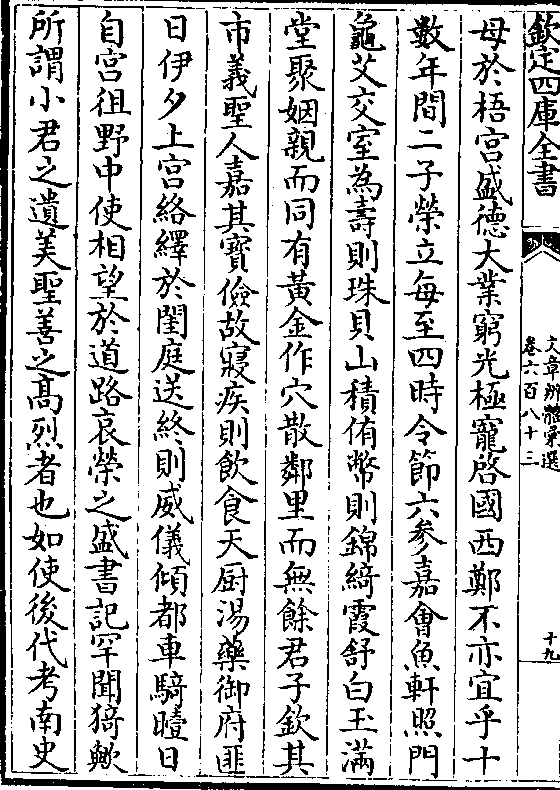 欽定四庫全書
文章辨體彙選
卷六百八十三
十九
母於梧宫盛德大業窮光極寵啓國西鄭不亦宜乎十
數年間二子榮立每至四時令節六參嘉會魚軒照門
龜艾交室為壽則珠貝山積侑幣則錦綺霞舒白玉滿
堂聚姻親而同有黄金作穴散鄰里而無餘君子欽其
市義聖人嘉其寶儉故寢疾則飲食天厨湯藥御府匪
日伊夕上宫絡繹於閨庭送終則威儀傾都車騎曀日
自宫徂野中使相望於道路哀榮之盛書記罕聞猗歟
所謂小君之遺美聖善之髙烈者也如使後代考南史